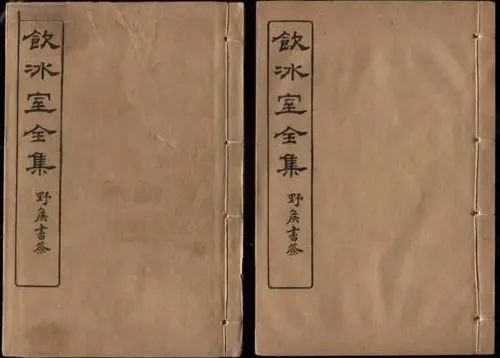 飲冰室全集
野侯書簽
飲冰室全集
野侯書簽